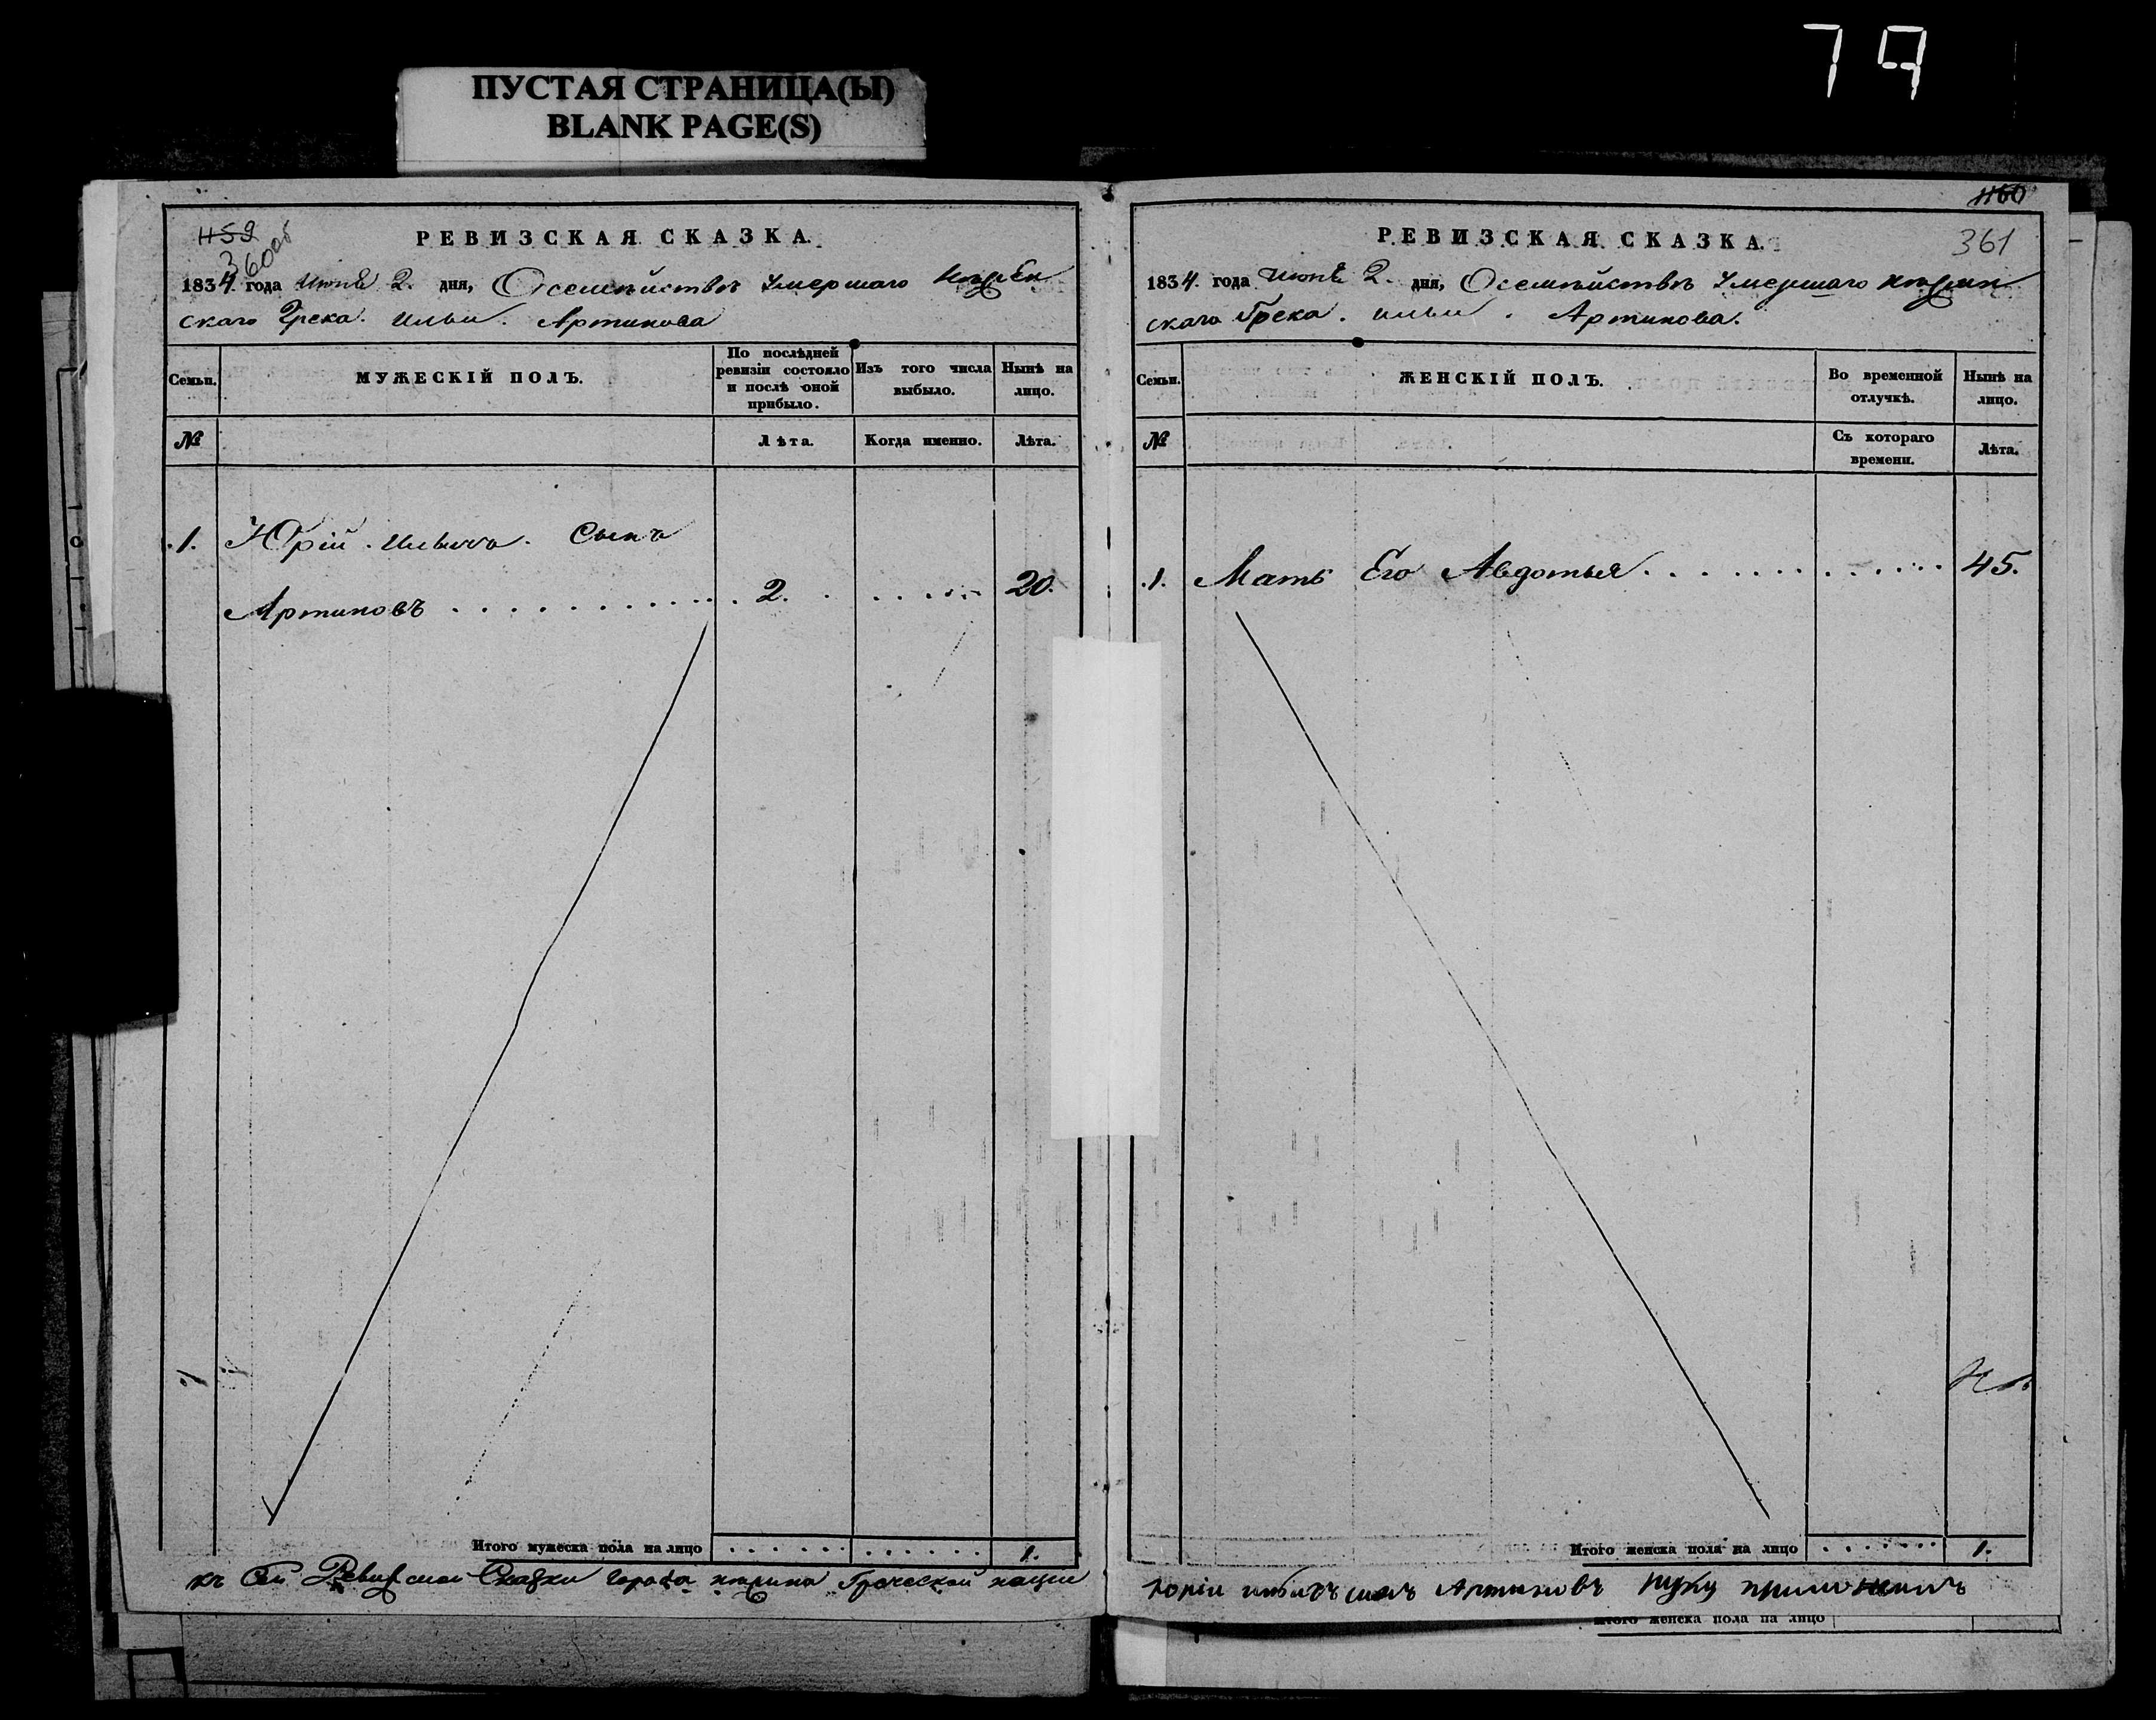 79
ПУСТАЯ СТРАНИЦА(Ы)
BLANK PAGE(S)
459
360об
РЕВИЗСКАЯ СКАЗКА.
1834. года Июня 2. дня, Осемействѣ Умершаго
скаго Грека. Ильи. Артинова
Семьи.
МУЖЕСКІЙ ПОЛЪ.
По послѣдней ревизіи состояло и послѣ оной прибыло.
Изъ того числа выбыло.
Нынѣ на лицо.
№
Лѣта.
Когда именно.
Лѣта.
1. Юрій Ильичъ. Сынъ
Артиновъ . . . . . . . . . . . . 2. . . . . . . . 20.
Итого мужеска пола на лицо . . . . . . . . . . . . 1.
къ Сей Ревизской Сказки города Греческой нации
460
361
РЕВИЗСКАЯ СКАЗКА.
1834. года июня 2. дня, Осемействѣ Умершаго
скаго Грека. Ильи. Артинова.
Семьи.
ЖЕНСКІЙ ПОЛЪ.
Во временной отлучкѣ.
Нынѣ на лицо.
№
Съ котораго времени.
Лѣта.
1. Мать Его Авдотья . . . . . . . . . . . . . . 45.
Итого женска пола на лицо . . . . . . . 1.
Юрій Артиновъ руку приложилъ
Итого женска пола на лицо